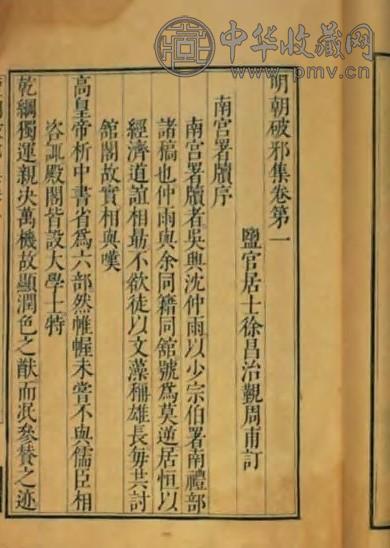 中华收藏网
www.pmv.cn
明朝破邪集卷第一
鹽官居士徐昌治覲周甫訂
南宮署牘序
南宮署牘者吳興沈仲雨以少宗伯署南禮部
諸稿也仲雨與余同籍同舘號為莫逆居恒以
經濟道誼相勗不欲徒以文藻稱雄長每共討
舘閣故實相與嘆
高皇帝析中書省為六部然帷幄未嘗不與儒臣相
咨諏殿閣皆設大學士特
乾綱獨運親決萬機故顯潤色之猷而泯參賛之迹